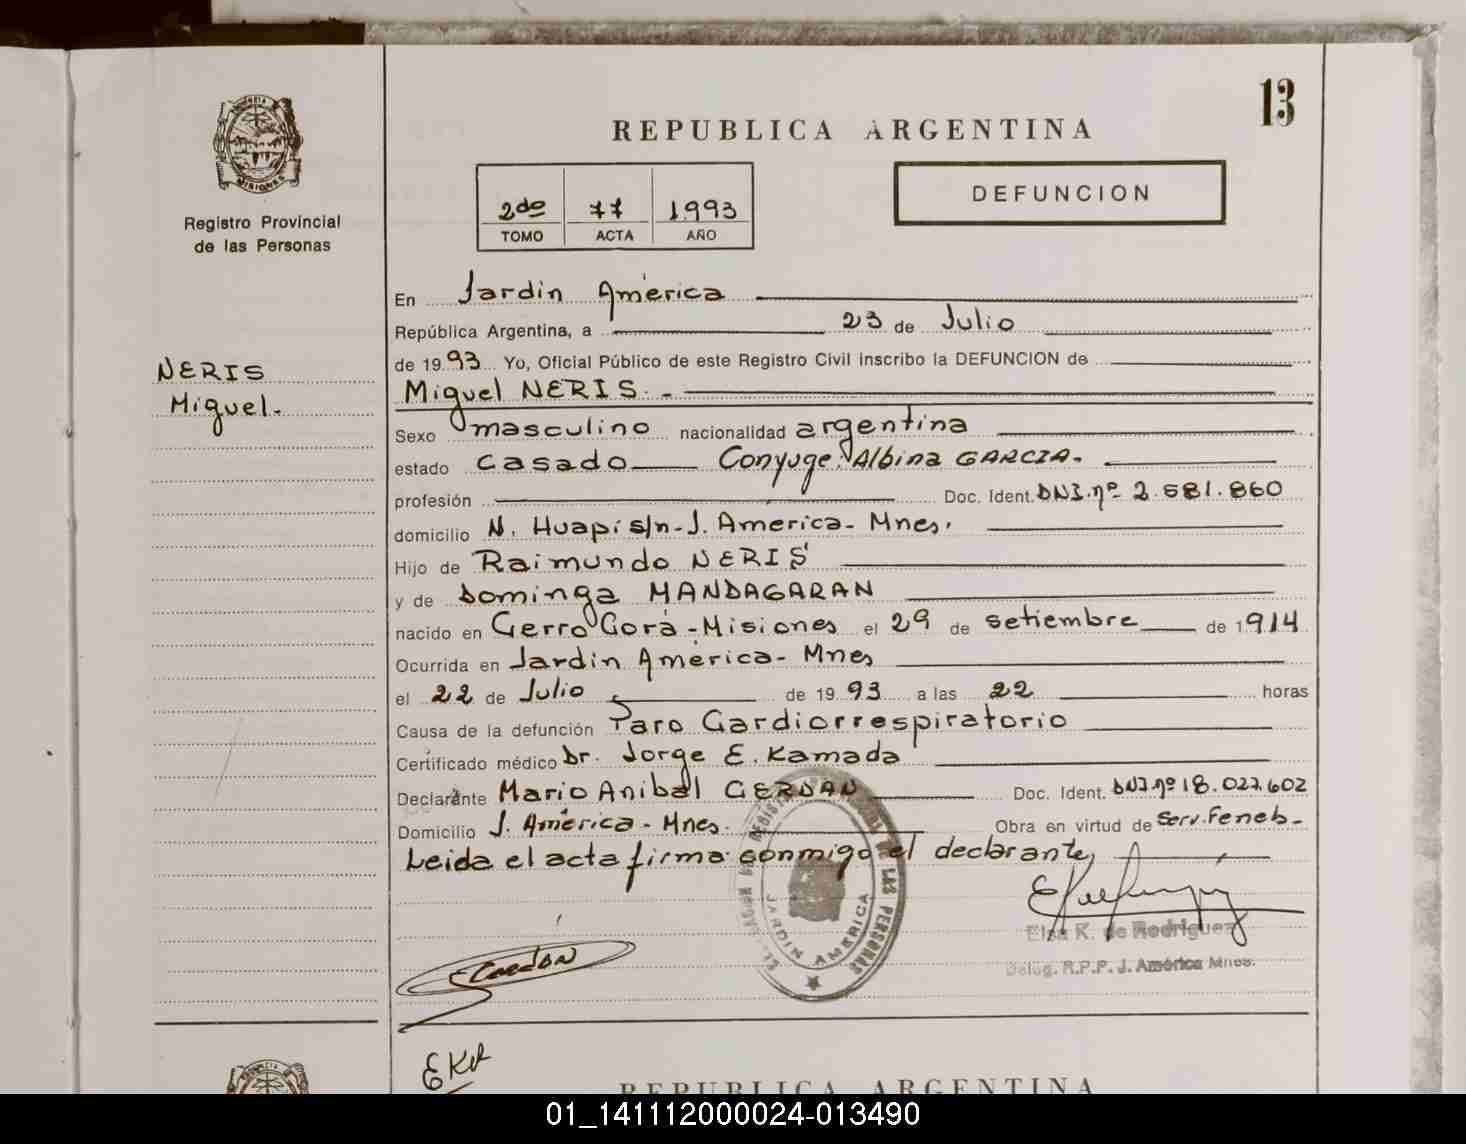 13
REPUBLICA ARGENTINA
DEFUNCION
2do 77 1993
TOMO ACTA AÑO
Registro Provincial
de las Personas
NERIS
Miguel.-
En Jardín América
República Argentina, a 23 de Julio
de 1993 Yo, Oficial Público de este Registro Civil inscribo la DEFUNCION de
Miguel NERIS.-
Sexo masculino nacionalidad argentina
estado casado Conyuge: Albina GARCIA.
profesión Doc. Ident. DNI.nº 2.581.860
domicilio N. Huapi s/n-J. America- Mnes.
Hijo de Raimundo NERIS
y de Dominga MANDAGARAN
nacido en Cerro Corá-Misiones el 29 de setiembre de 1914
Ocurrida en Jardín América- Mnes
el 22 de Julio de 1993 a las 22 horas
Causa de la defunción Paro Cardiorrespiratorio
Certificado médico Dr. Jorge E. Kamada
Declarante Mario Anibal CERDAN Doc. Ident. DNI.nº 18.022.602
Domicilio J. América- Mnes. Obra en virtud de Serv. Feneb-
Leida el acta firma conmigo el declarante,
JARDIN AMERICA
DE LAS PERSONAS
Elsa K. de Rodriguez
Deleg. R.P.P. J. América Mnes.
REPUBLICA ARGENTINA
01_141112000024-013490